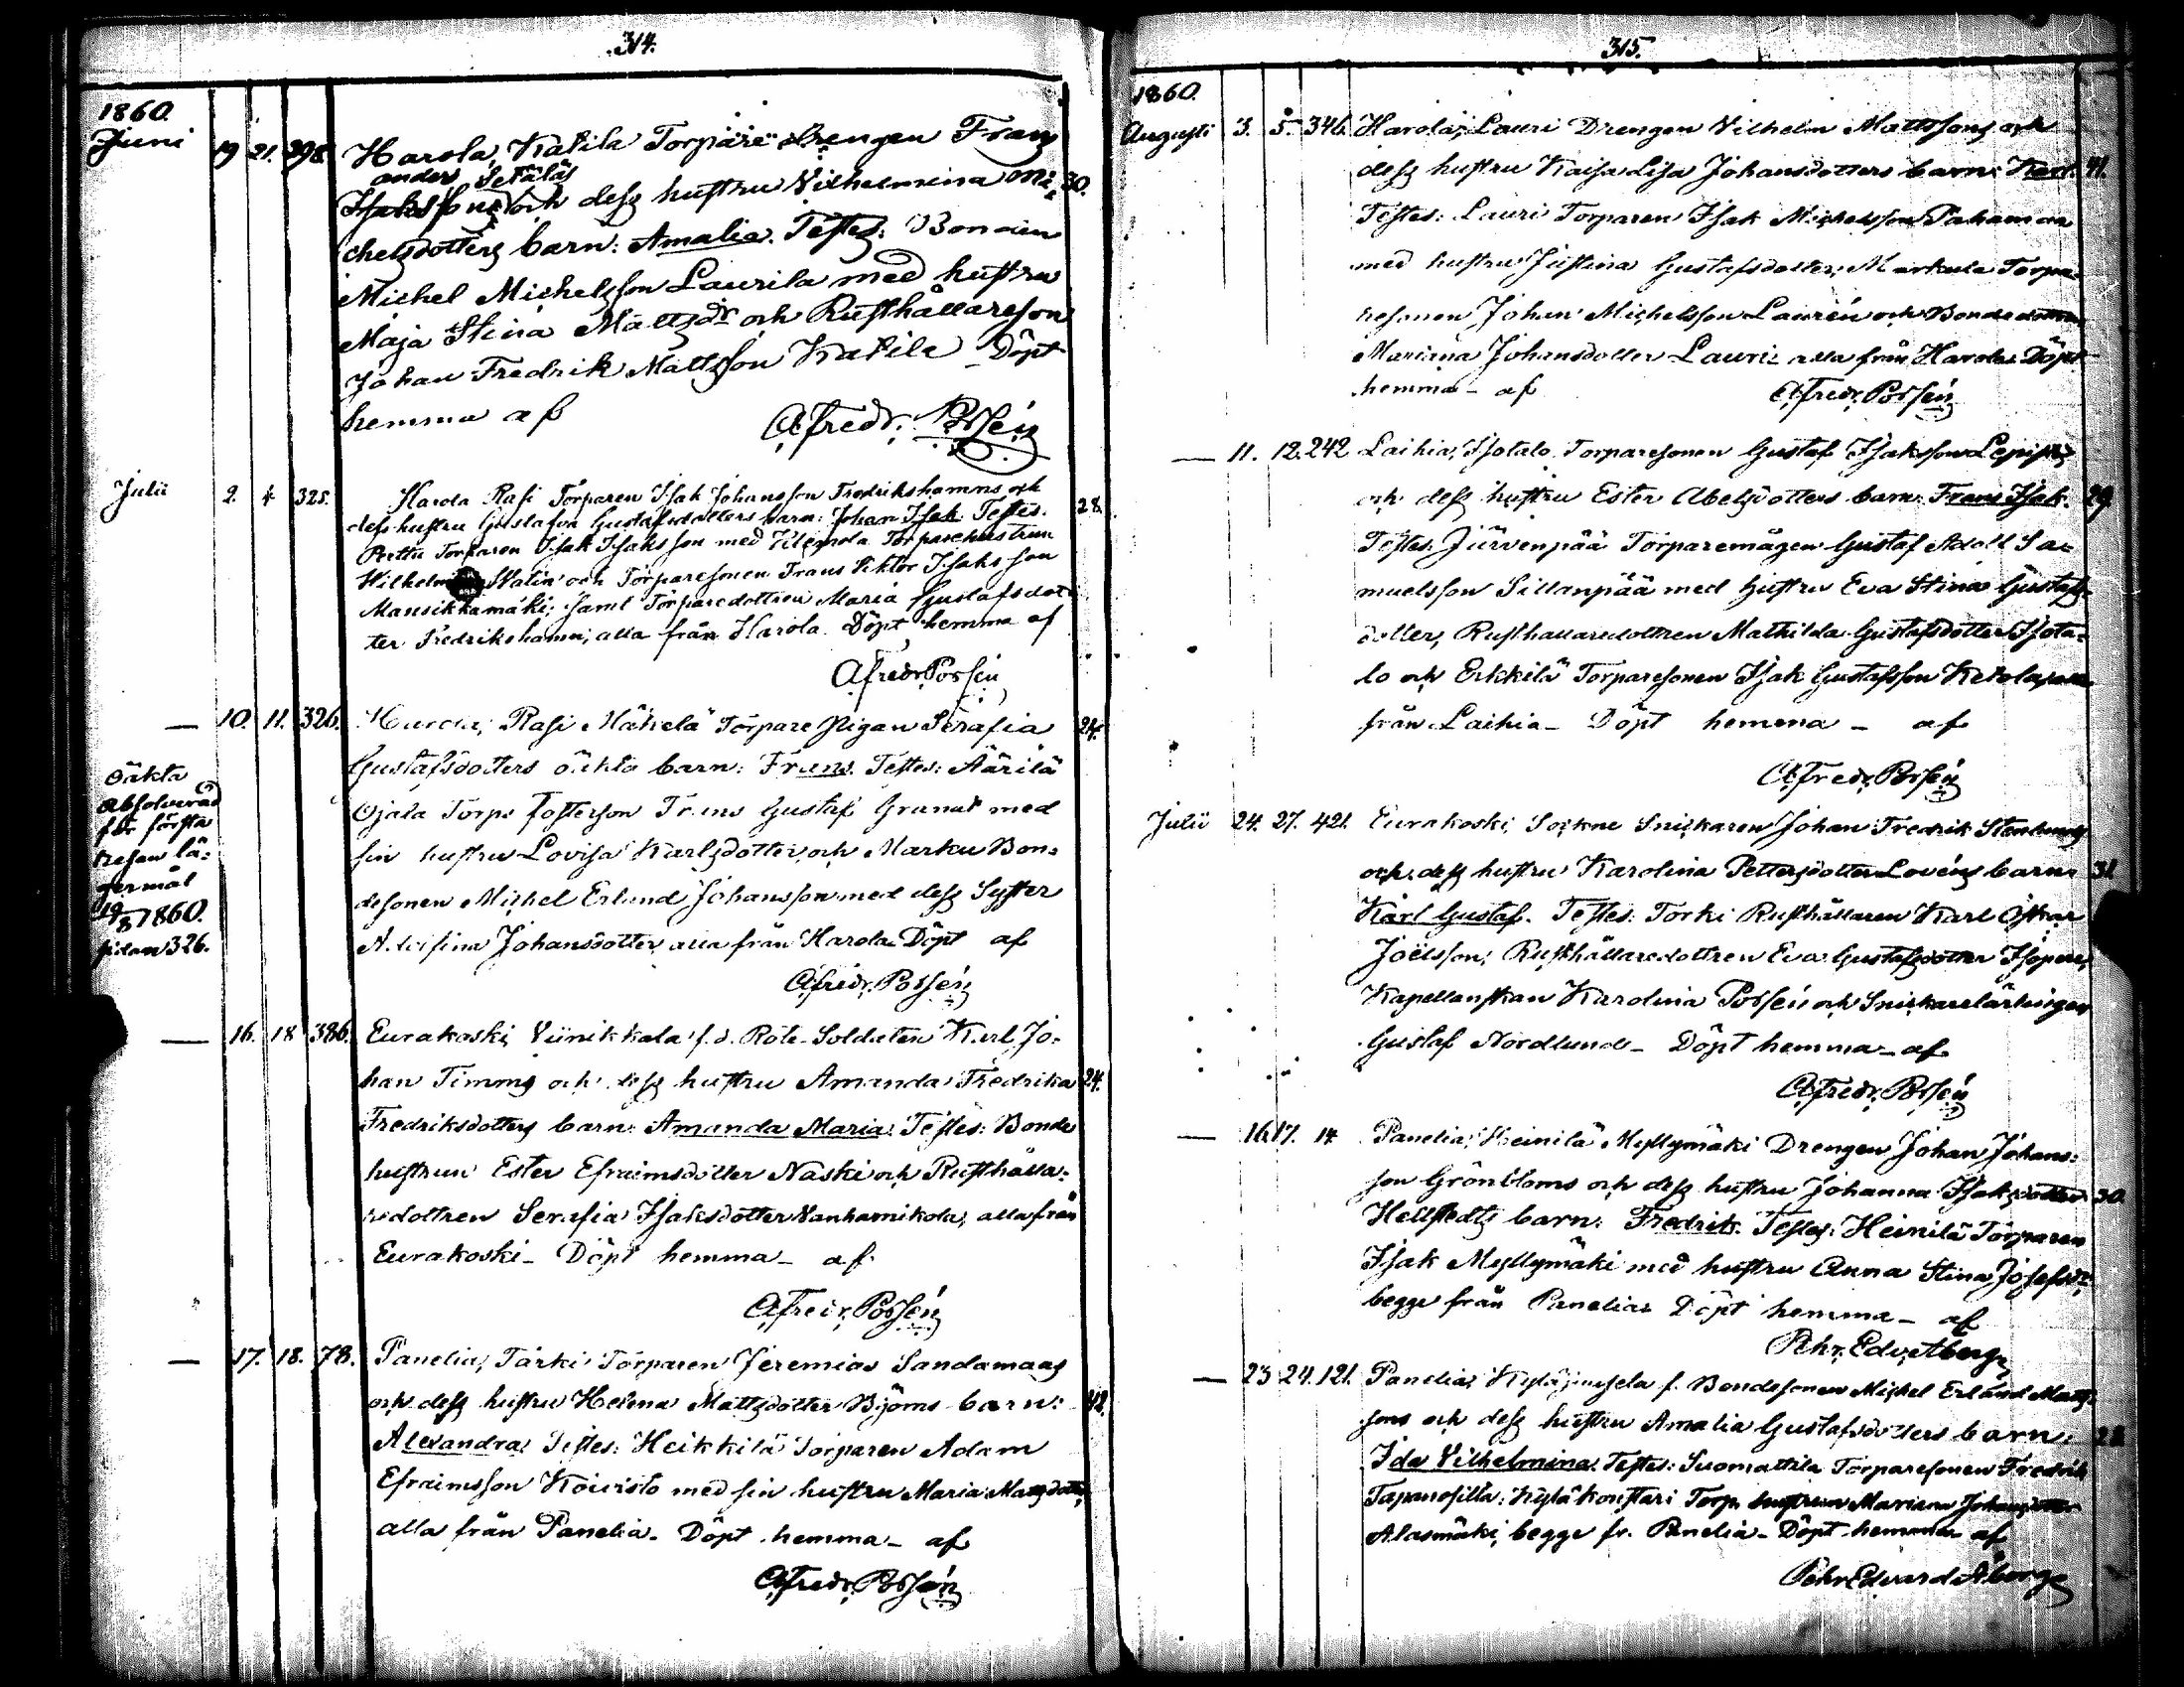 314.
1860.
Juni 19 21. 298. Harola, Katila Torpare drengen Frans
anders Setäläs
Isakssons och dess hustru Vilhelmina Mi- 30.
chelsdotters barn: Amalia. Testes: Bonden
Michel Michelsson Laurila med hustru
Maja Stina Mattsdr och Rusthållareson
Johan Fredrik Mattsson Katila Döpt
hemma af
Afredr. Possén
Julii 2. 4. 325. Harola Rasi Torparen Isak Johansson Fredrikshamns och 28.
dess hustru Gustafva Gustafsdotters barn: Johan Isak. Testes.
Perttu Torparen Isak Isaksson med Torparehustrun
Wilhelmina Walin och Torparesonen Frans Viktor Isaksson
Mansikkamäki; samt Torparedottren Maria Gustafsdot-
ter Fredrikshamn; alla från Harola. Döpt hemma af
Afredr. Possén
— 10. 11. 326. Harola, Rasi Mäkelä Torpare Pigan Serafia 24.
Gustafsdotters oäkta barn: Frans. Testes: Äärilä
Ojala Torps fosterson Frans Gustaf Granat med
sin hustru Lovisa Karlsdotter och Marku Bon-
desonen Michel Erland Johansson med dess Syster
Johansdotter, alla från Harola Döpt af
Afredr. Possén
Oäkta
absolverad
för första
resan lä-
germål
19/8 1860.
sidan 326.
— 16. 18 386. Eurakoski, Viinikkala f.d. Rote-Soldaten Karl Jo-
han Timms och dess hustru Amanda Fredrika 24.
Fredriksdotters barn: Amanda Maria. Testes: Bonde
hustrun Ester Efraimsdotter Naski och Rusthålla-
redottren Serafia Isaksdotter Vanhamikola, alla från
Eurakoski - Döpt hemma - af
Afredr. Possén
— 17. 18. 78. Panelia, Tärki Torparen Jeremias Sandamaas
och dess hustru Helena Mattsdotter Björns barn: 42.
Alexandra. Testes: Heikkilä Torparen Adam
Efraimsson Koivisto med sin hustru Maria Mattsdotter,
alla från Panelia. Döpt hemma - af
Afredr. Possén
315.
1860.
Augusti 3. 5. 346. Harola, Lauri Drengen Vilhelm Mattssons och
dess hustru Kaisa Lisa Johansdotters barn: Karl. 41.
Testes: Lauri Torparen Isak Michelsson Pahamaa
med hustru Justina Gustafsdotter; Markula Torpa-
resonen Johan Michelsson Laurén och Bondedottren
Mariana Johansdotter Lauri alla från Harola Döpt
hemma - af Afredr. Possén
— 11. 12. 242 Laihia, Isotalo Torparesonen Gustaf Isaksson Lepistö
och dess hustru Ester Abelsdotters barn: Frans Isak. 29.
Testes. Järvenpää Torparemågen Gustaf Adolf Sa-
muelsson Sillanpää med hustru Eva Stina Gustafs-
dotter, Rusthållaredottren Mathilda Gustafsdotter Isota-
lo och Erkkilä Torparesonen Isak Gustafsson Ketola, alla
från Laihia - Döpt hemma - af
Afredr. Possén
Julii 24. 27. 421. Eurakoski, Sockne Snickaren Johan Fredrik Stenlunds
och dess hustru Karolina Pettersdotter Lovéns barn: 31
Karl Gustaf. Testes: Torki Rusthållaren Karl Oskar
Joëlsson; Rusthållaredottren Eva Gustafsdotter
Kapellanskan Karolina Possén och Snickarelärlingen
Gustaf Nordlund - Döpt hemma - af
Afredr. Possén
— 16. 17. 14 Panelia, Heinilä Myllymäki Drengen Johan Johans-
son Grönbloms och dess hustru Johanna Isaksdotter 30.
Hellstedts barn: Fredrik. Testes: Heinilä Torparen
Isak Myllymäki med hustru Anna Stina Josefsdr,
begge från Panelia Döpt hemma - af
Pehr Edv. Åberg
— 23 24. 121. Panelia, f. Bondesonen Michel Erland Matts-
sons och dess hustru Amalia Gustafsdotters barn:
Ida Vilhelmina. Testes: Suomattila Torparesonen Fredrik
Tapanisilla; Kyläkonstari Torp. hustrun Mariana Johansdotter
Alasmäki, begge fr. Panelia - Döpt hemma af
Pehr Edvard Åberg